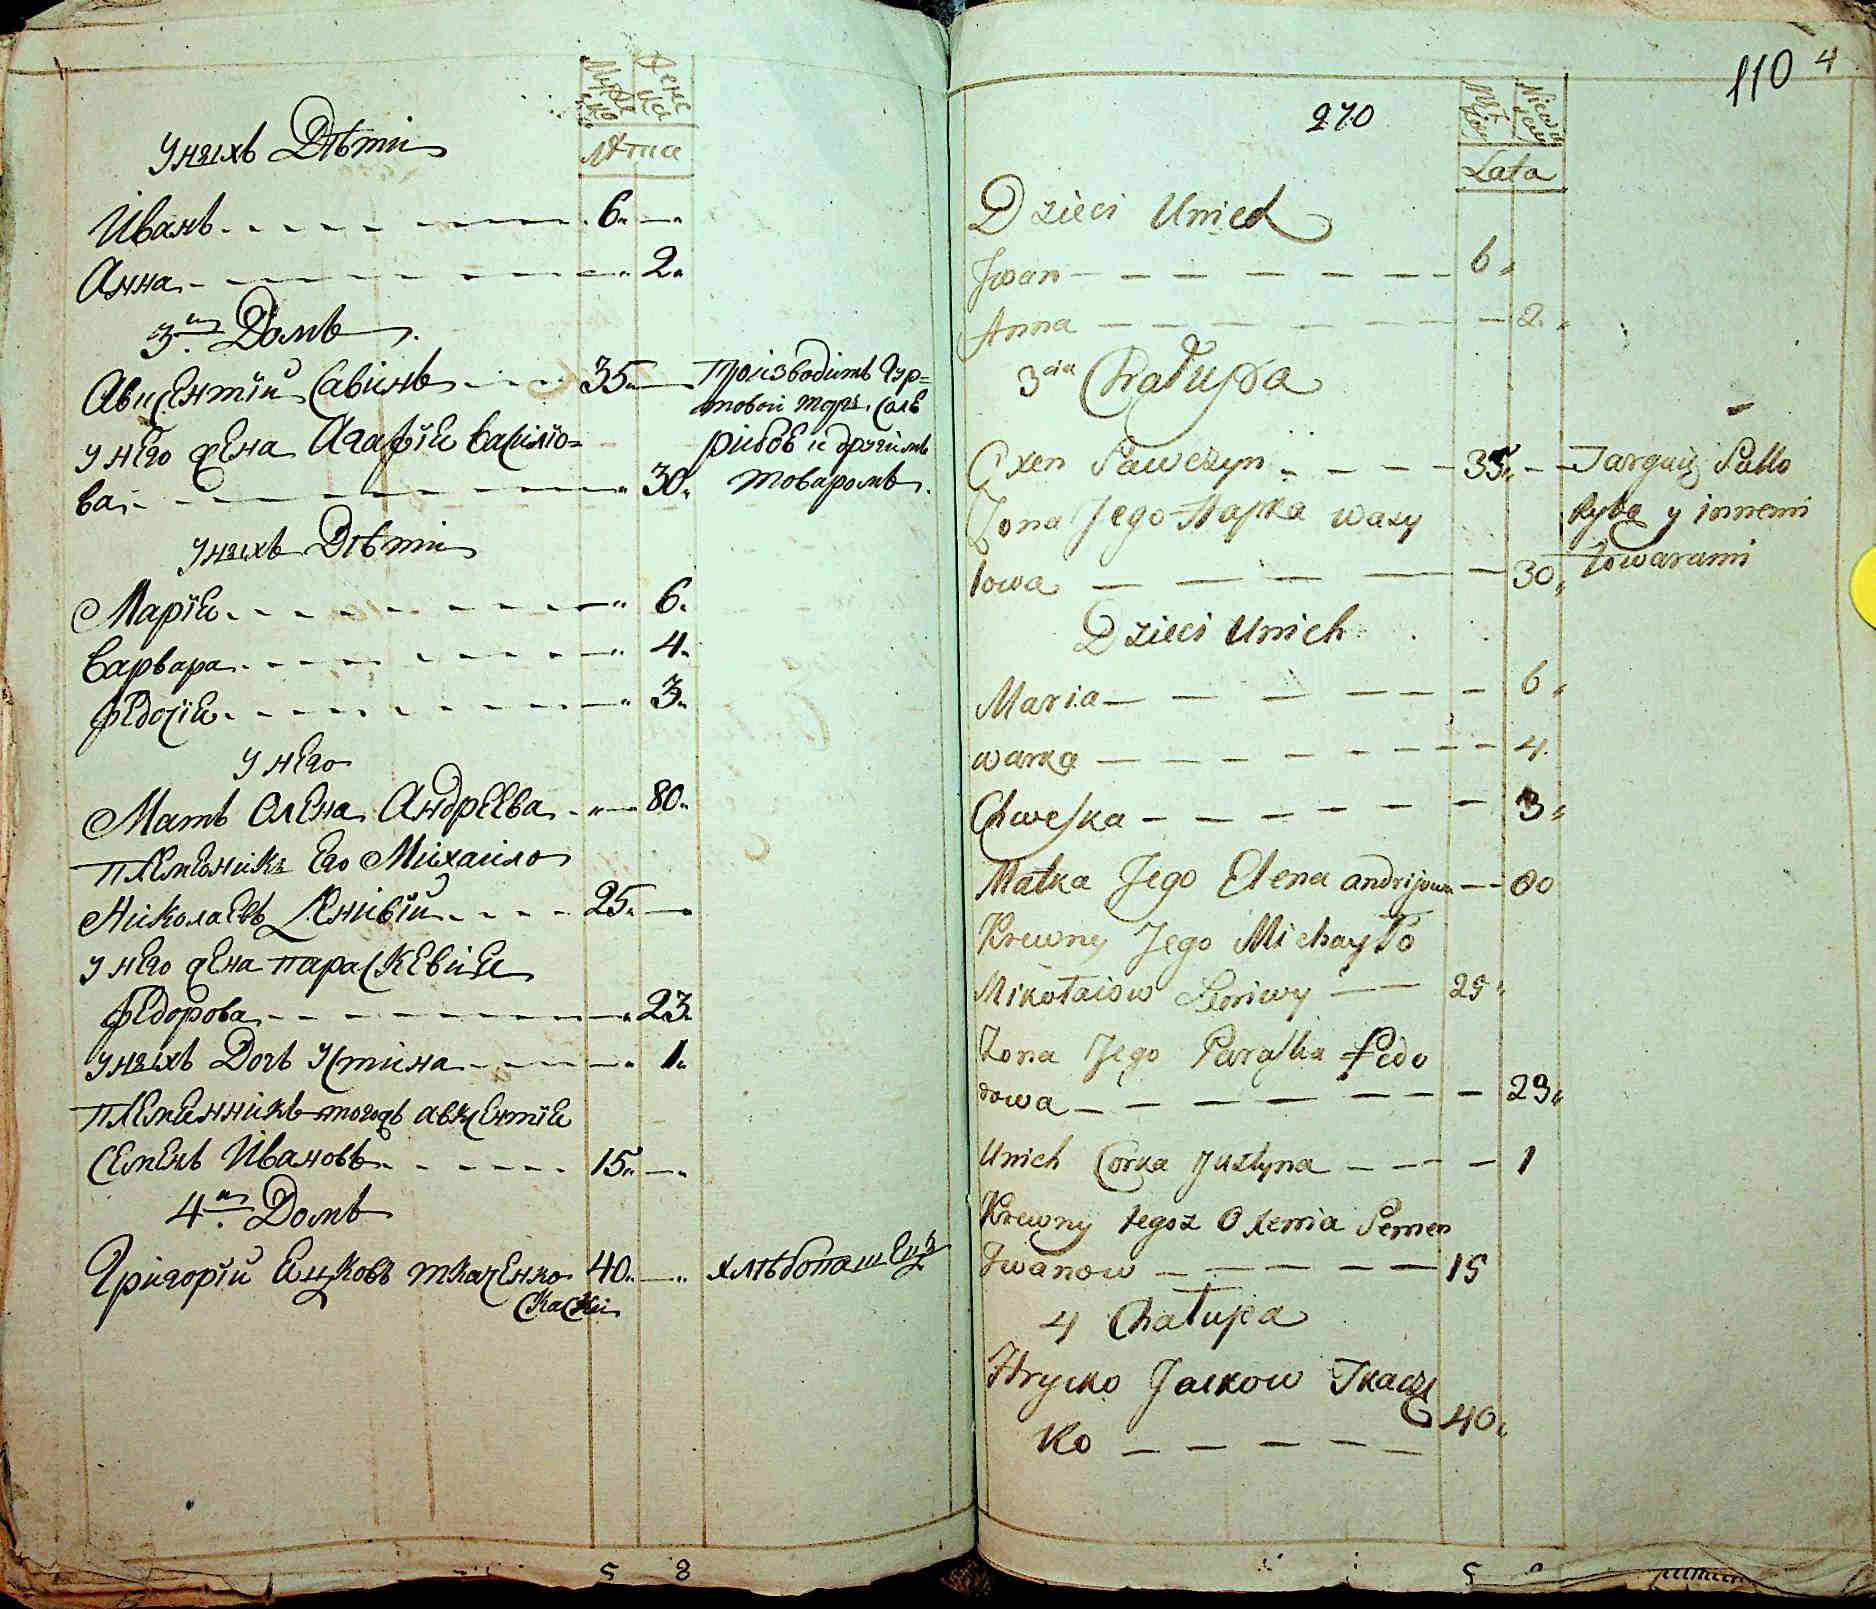 Мужеско
Женска
лѣта
У ныхъ Дѣти
Иванъ 6
Анна 2
3й Домъ
Авксентий Савинъ 35 производитъ гур=
товой торгъ. солѣ
у него жена Агафія Василіо= рибоѣ и другимъ
ва 30 товаромъ.
У ныхъ Дѣти
Марія 6
Варвара 4
Федосія 3
у него
Мать Олена Андреева 80
племѣникъ его Михаило
Николаевъ Лѣнивій 25
у него жена Параскевиія
Федорова 23
у ныхъ Дочь Устина 1
Племѣнникъ тогожъ Авксентія
Семенъ Ивановъ 15
4й Домъ
Григорій Яцковъ Ткаченко 40 хлѣбопашецъ
Сказски
5 8
110 4
270
Lata
Dzieci Unich
Jwan 6
Anna 2
3cia Chałupa
Oxen Sawczyn 35 Targuię Sallo
Zona Jego Hapka Wasy Rybą y innemi
lowa 30 towarami
Dzieci Unich
Maria 6
Warka 4
Chweska 3
Matka Jego Elena andrijowa 80
Krewny Jego Michayło
Mikołaiow Leniwy 25
Zona Jego Paraska Fedo
rowa 23
Unich Corka Justyna 1
Krewny tegoż Oxenia Semen
Jwanow 15
4 Chałupa
Hrycko Jackow Tkacze
ko 40
5